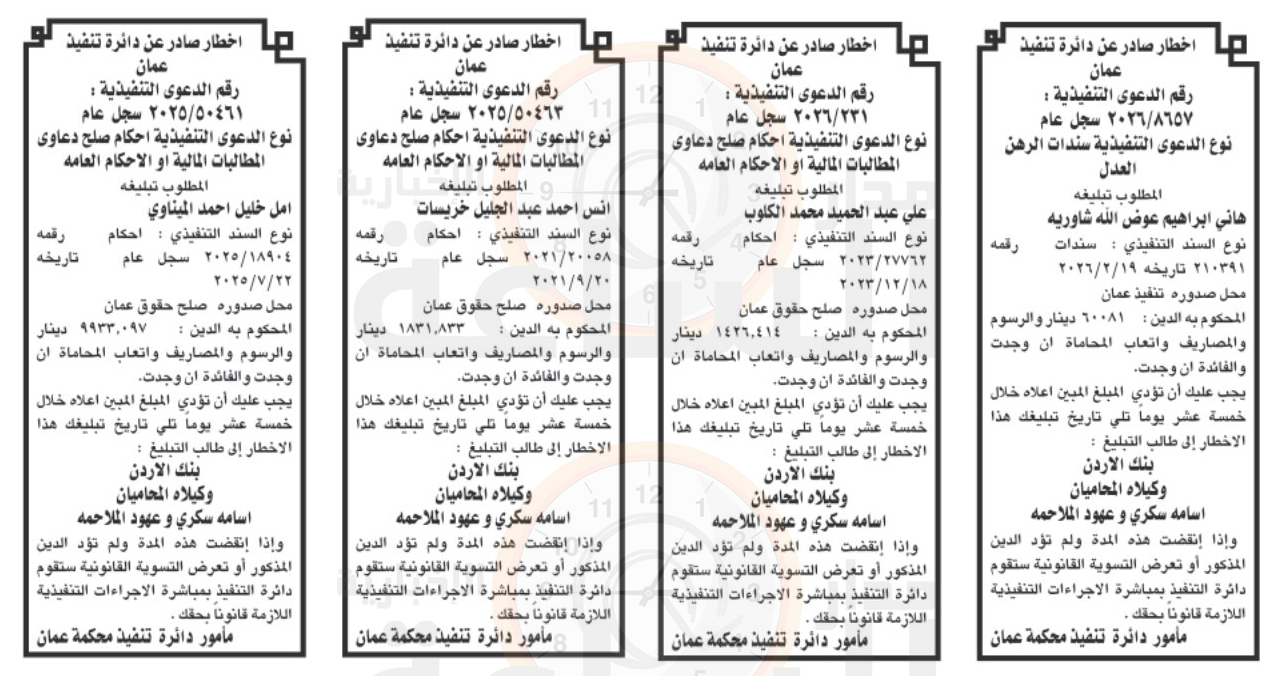 اخطار صادر عن دائرة تنفيذ
عمان
رقم الدعوى التنفيذية :
٢٠٢٦/٨٦٥٧ سجل عام
نوع الدعوى التنفيذية سندات الرهن
العدل
المطلوب تبليغه
هاني ابراهيم عوض الله شاوريه
نوع السند التنفيذي : سندات رقمه
٢١٠٣٩١ تاريخه ٢٠٢٦/٢/١٩
محل صدوره تنفيذ عمان
المحكوم به الدين : ٦٠٠٨١ دينار والرسوم
والمصاريف واتعاب المحاماة ان وجدت
والفائدة ان وجدت.
يجب عليك أن تؤدي المبلغ المبين اعلاه خلال
خمسة عشر يوماً تلي تاريخ تبليغك هذا
الاخطار إلى طالب التبليغ :
بنك الاردن
وكيلاه المحاميان
اسامه سكري و عهود الملاحمه
وإذا إنقضت هذه المدة ولم تؤد الدين
المذكور أو تعرض التسوية القانونية ستقوم
دائرة التنفيذ بمباشرة الاجراءات التنفيذية
اللازمة قانوناً بحقك .
مأمور دائرة تنفيذ محكمة عمان
اخطار صادر عن دائرة تنفيذ
عمان
رقم الدعوى التنفيذية :
٢٠٢٦/٢٣١ سجل عام
نوع الدعوى التنفيذية احكام صلح دعاوى
المطالبات المالية او الاحكام العامه
المطلوب تبليغه
علي عبد الحميد محمد الكلوب
نوع السند التنفيذي : احكام رقمه
٢٠٢٣/٢٧٧٦٢ سجل عام تاريخه
٢٠٢٣/١٢/١٨
محل صدوره صلح حقوق عمان
المحكوم به الدين : ١٤٢٦,٤١٤ دينار
والرسوم والمصاريف واتعاب المحاماة ان
وجدت والفائدة ان وجدت.
يجب عليك أن تؤدي المبلغ المبين اعلاه خلال
خمسة عشر يوماً تلي تاريخ تبليغك هذا
الاخطار إلى طالب التبليغ :
بنك الاردن
وكيلاه المحاميان
اسامه سكري و عهود الملاحمه
وإذا إنقضت هذه المدة ولم تؤد الدين
المذكور أو تعرض التسوية القانونية ستقوم
دائرة التنفيذ بمباشرة الاجراءات التنفيذية
اللازمة قانوناً بحقك .
مأمور دائرة تنفيذ محكمة عمان
اخطار صادر عن دائرة تنفيذ
عمان
رقم الدعوى التنفيذية :
٢٠٢٥/٥٠٤٦٣ سجل عام
نوع الدعوى التنفيذية احكام صلح دعاوى
المطالبات المالية او الاحكام العامه
المطلوب تبليغه
انس احمد عبد الجليل خريسات
نوع السند التنفيذي : احكام رقمه
٢٠٢١/٢٠٠٥٨ سجل عام تاريخه
٢٠٢١/٩/٢٠
محل صدوره صلح حقوق عمان
المحكوم به الدين : ١٨٣١,٨٣٣ دينار
والرسوم والمصاريف واتعاب المحاماة ان
وجدت والفائدة ان وجدت.
يجب عليك أن تؤدي المبلغ المبين اعلاه خلال
خمسة عشر يوماً تلي تاريخ تبليغك هذا
الاخطار إلى طالب التبليغ :
بنك الاردن
وكيلاه المحاميان
اسامه سكري و عهود الملاحمه
وإذا إنقضت هذه المدة ولم تؤد الدين
المذكور أو تعرض التسوية القانونية ستقوم
دائرة التنفيذ بمباشرة الاجراءات التنفيذية
اللازمة قانوناً بحقك .
مأمور دائرة تنفيذ محكمة عمان
اخطار صادر عن دائرة تنفيذ
عمان
رقم الدعوى التنفيذية :
٢٠٢٥/٥٠٤٦١ سجل عام
نوع الدعوى التنفيذية احكام صلح دعاوى
المطالبات المالية او الاحكام العامه
المطلوب تبليغه
امل خليل احمد الميناوي
نوع السند التنفيذي : احكام رقمه
٢٠٢٥/١٨٩٠٤ سجل عام تاريخه
٢٠٢٥/٧/٢٢
محل صدوره صلح حقوق عمان
المحكوم به الدين : ٩٩٣٣,٠٩٧ دينار
والرسوم والمصاريف واتعاب المحاماة ان
وجدت والفائدة ان وجدت.
يجب عليك أن تؤدي المبلغ المبين اعلاه خلال
خمسة عشر يوماً تلي تاريخ تبليغك هذا
الاخطار إلى طالب التبليغ :
بنك الاردن
وكيلاه المحاميان
اسامه سكري و عهود الملاحمه
وإذا إنقضت هذه المدة ولم تؤد الدين
المذكور أو تعرض التسوية القانونية ستقوم
دائرة التنفيذ بمباشرة الاجراءات التنفيذية
اللازمة قانوناً بحقك .
مأمور دائرة تنفيذ محكمة عمان